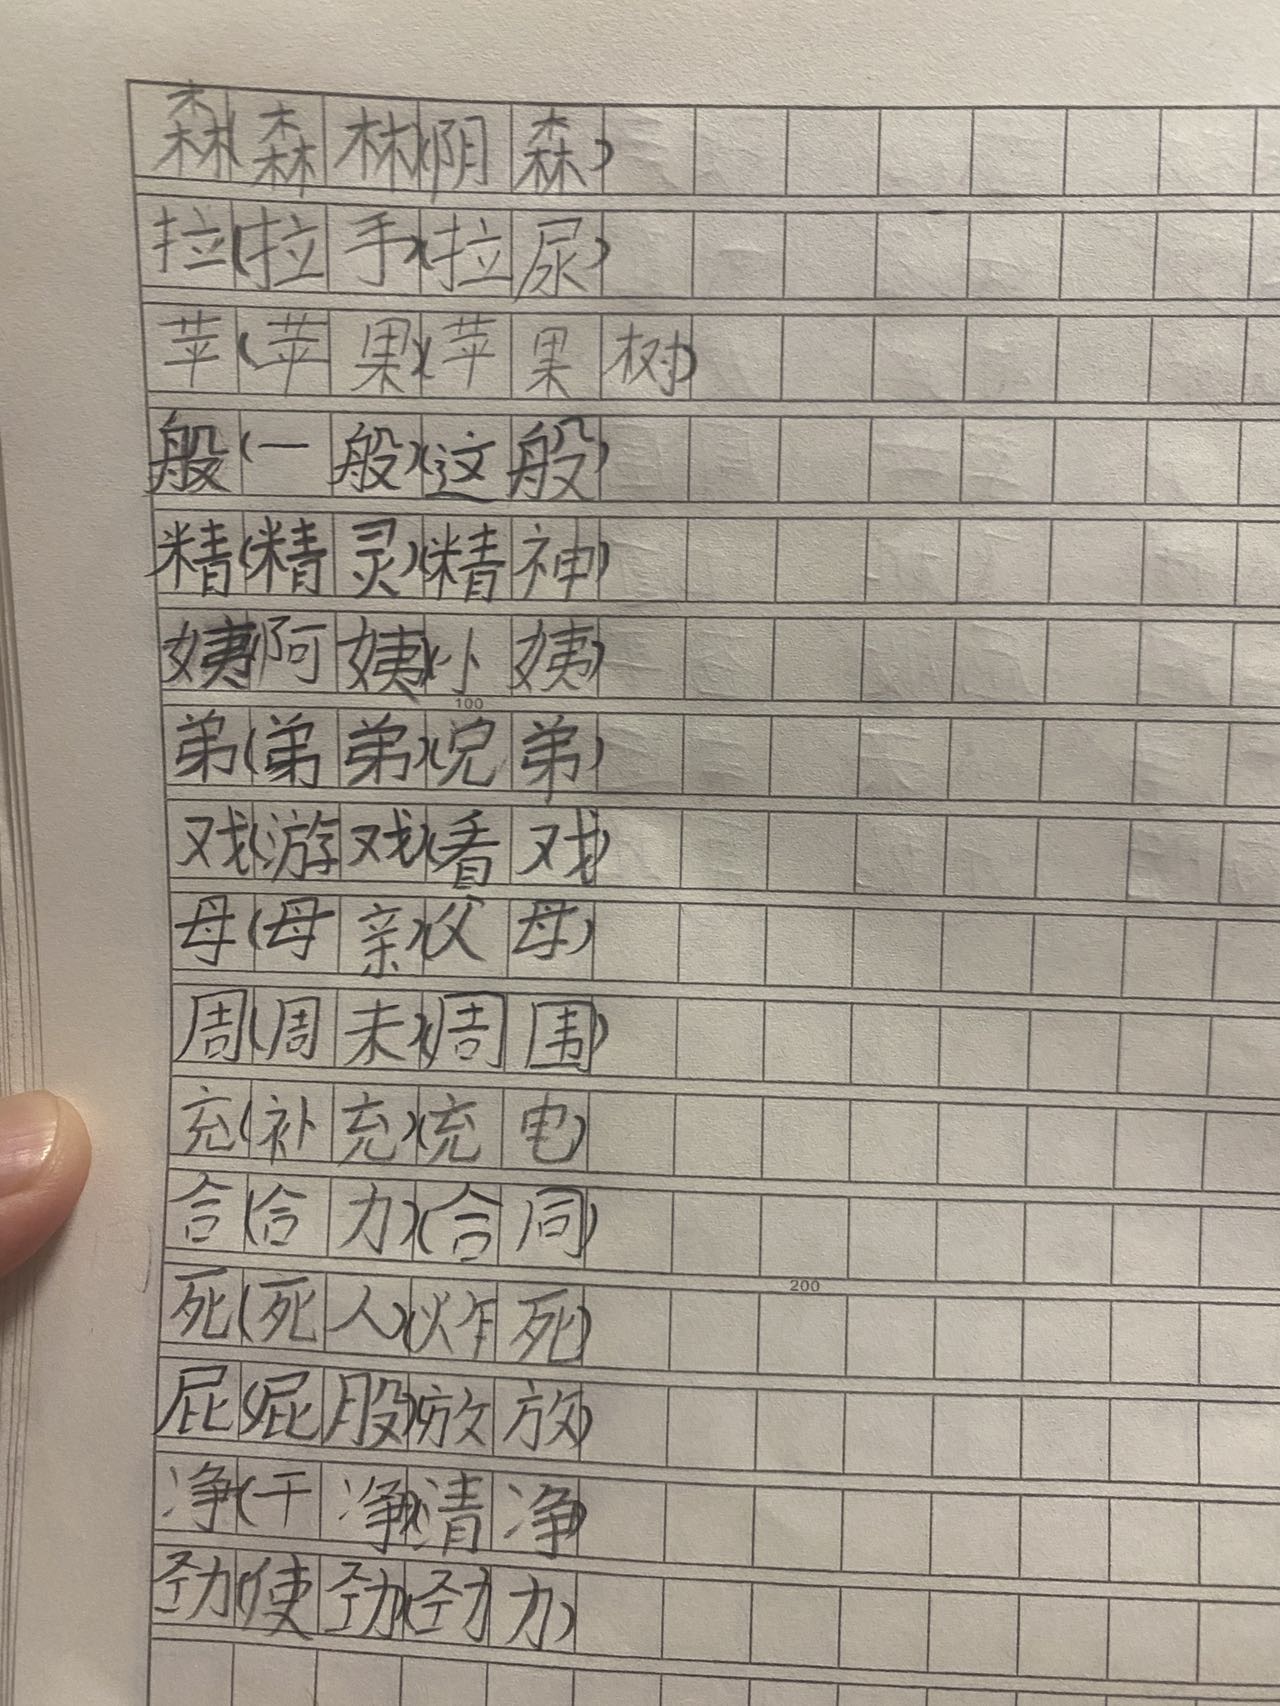 森(森林)(阴森)
拉(拉手)(拉尿)
苹(苹果)(苹果树)
般(一般)(这般)
精(精灵)(精神)
姨(阿姨)(小姨)
100
弟(弟弟)(兄弟)
戏(游戏)(看戏)
母(母亲)(父母)
周(周未)(周围)
充(补充)(充电)
合(合力)(合同)
200
死(死人)(炸死)
屁(屁股)(放放)
净(干净)(清净)
劲(使劲)(劲力)